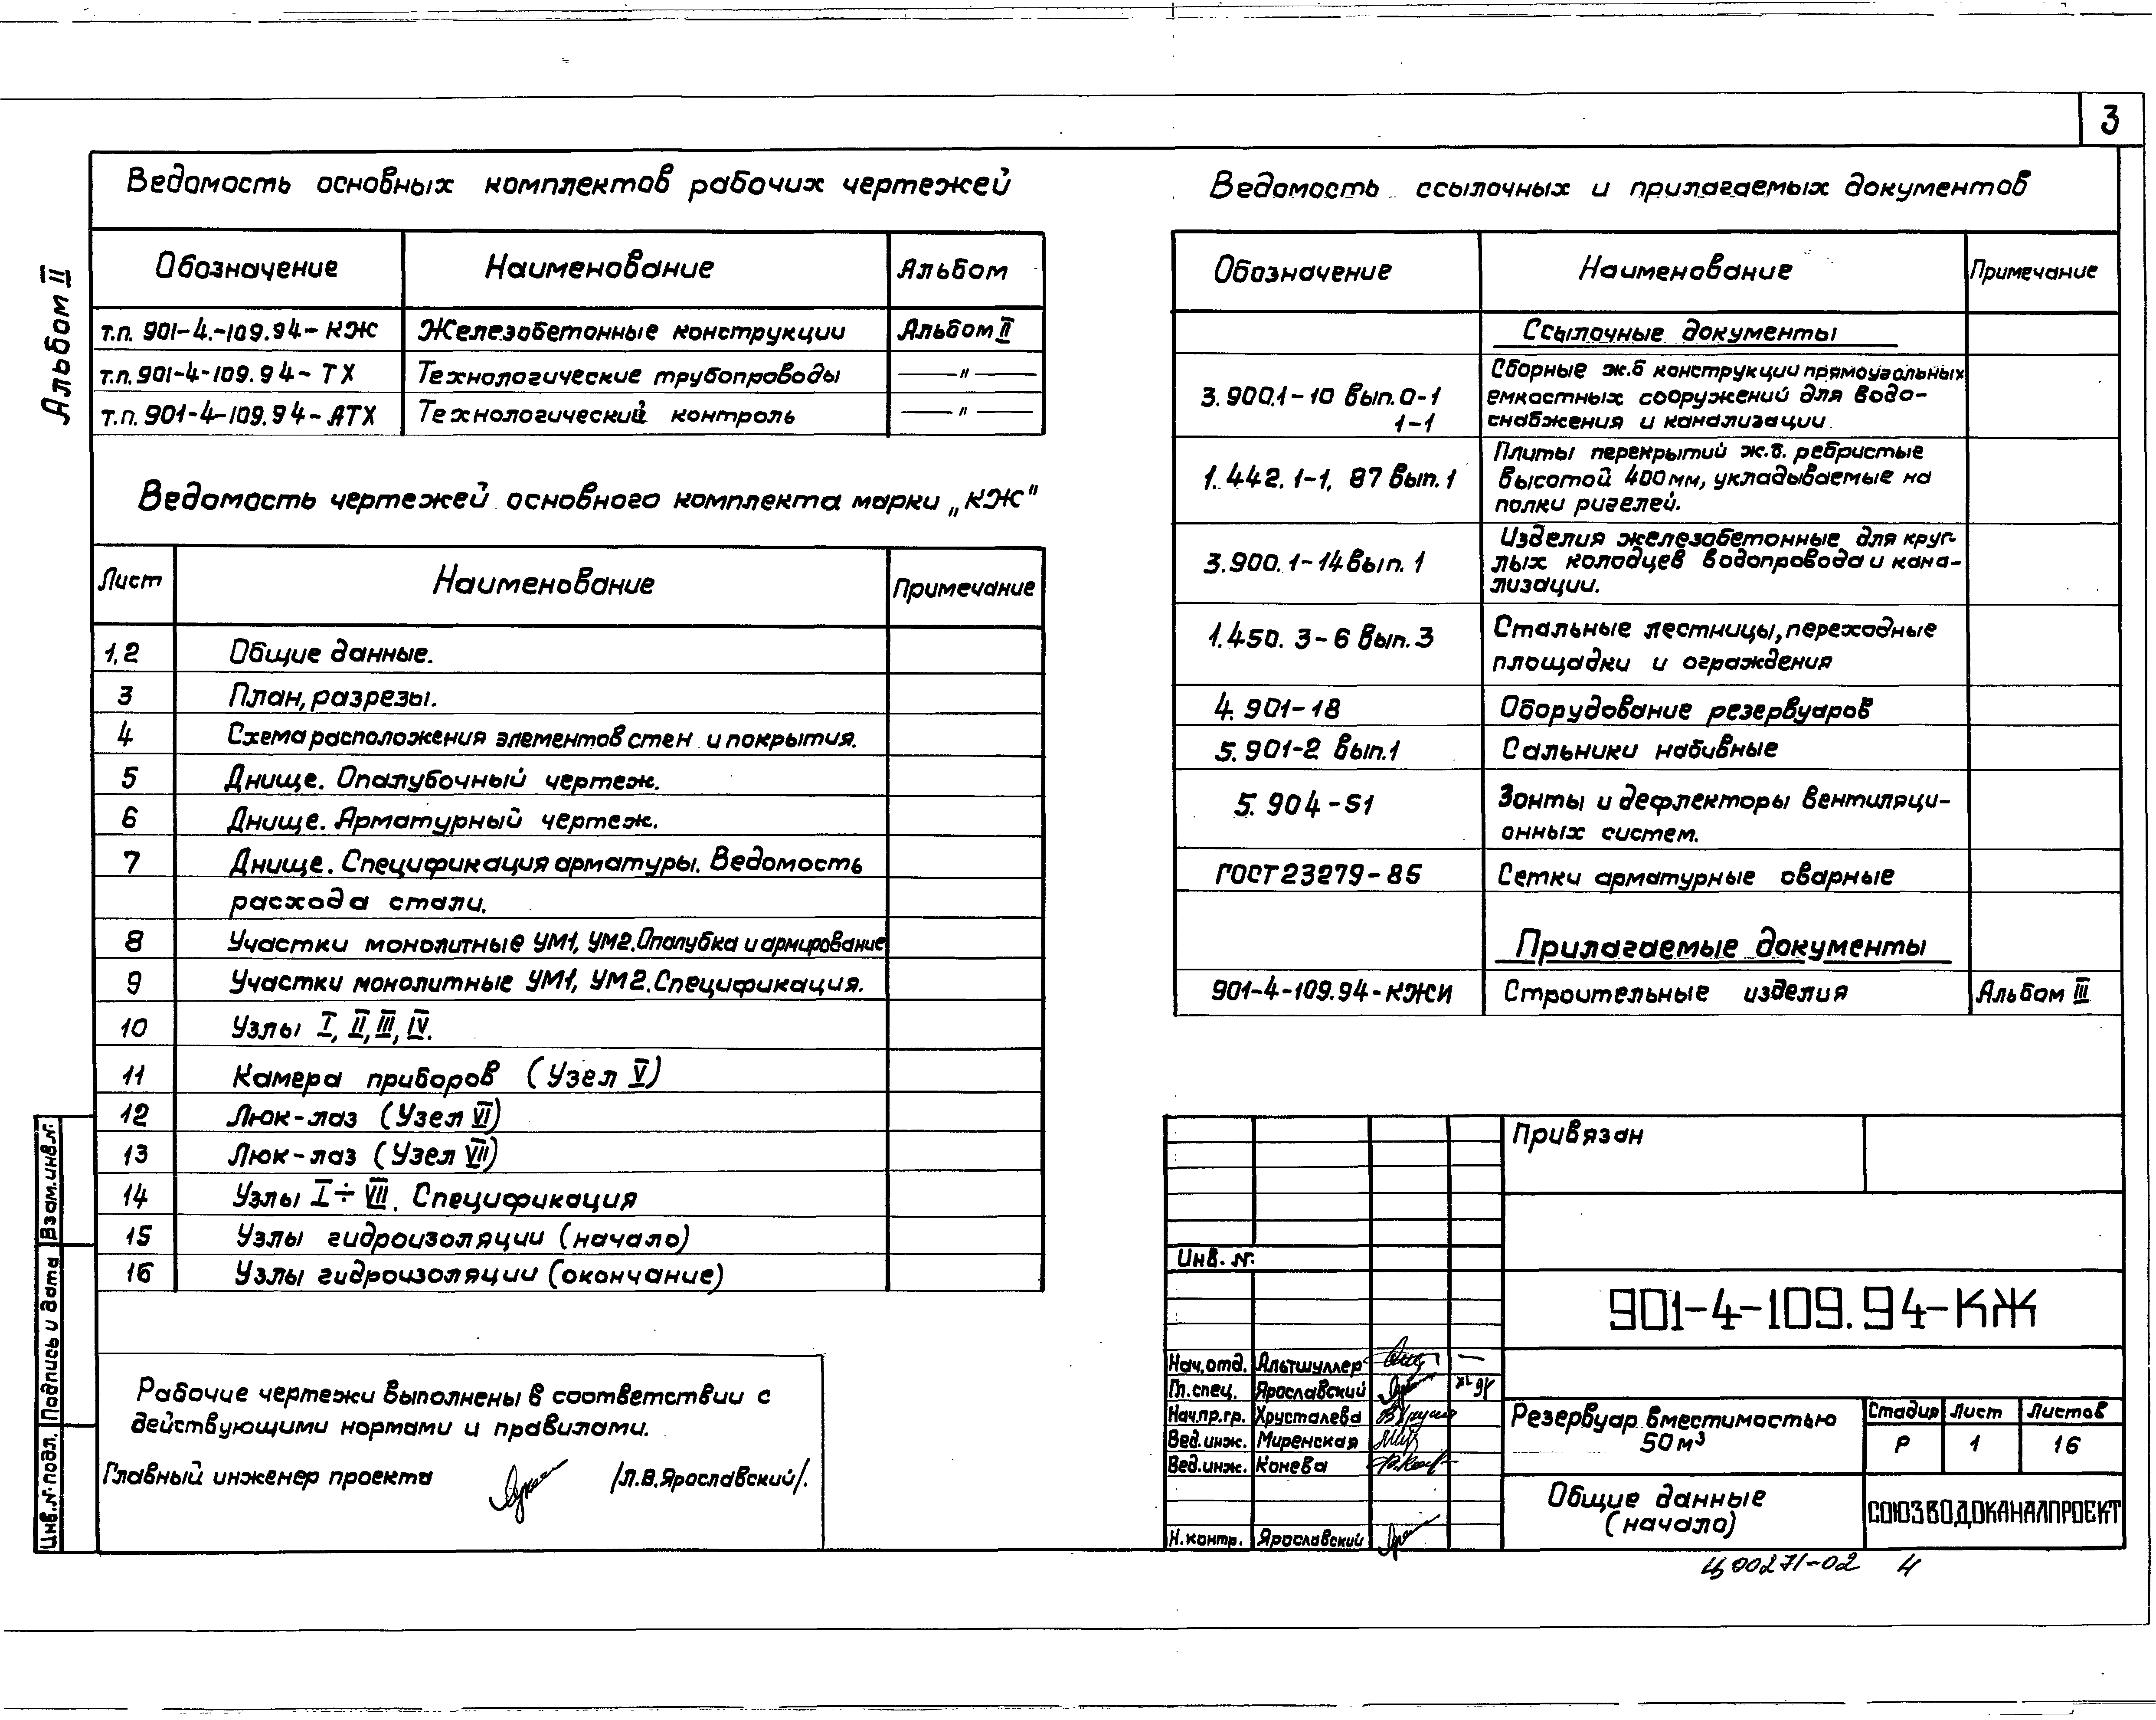 3
Альбом II
Ведомость основных комплектов рабочих чертежей
Обозначение Наименование Альбом
т.п. 901-4.-109.94-КЖ Железобетонные конструкции Альбом II
т.п. 901-4-109.94-ТХ Технологические трубопроводы —"—
т.п. 901-4-109.94-АТХ Технологический контроль —"—
Ведомость чертежей основного комплекта марки „КЖ"
Лист Наименование Примечание
1,2 Общие данные.
3 План, разрезы.
4 Схема расположения элементов стен и покрытия.
5 Днище. Опалубочный чертеж.
6 Днище. Арматурный чертеж.
7 Днище. Спецификация арматуры. Ведомость
расхода стали.
8 Участки монолитные УМ1, УМ2. Опалубка и армирование
9 Участки монолитные УМ1, УМ2. Спецификация.
10 Узлы I, II, III, IV.
11 Камера приборов (Узел V)
12 Люк-лаз (Узел VI)
13 Люк-лаз (Узел VII)
14 Узлы I÷VII. Спецификация
15 Узлы гидроизоляции (начало)
16 Узлы гидроизоляции (окончание)
Рабочие чертежи выполнены в соответствии с
действующими нормами и правилами.
Главный инженер проекта /Л.В.Ярославский/.
Взам.инв.N.
Подпись и дата
Инв.N.подл.
Ведомость ссылочных и прилагаемых документов
Обозначение Наименование Примечание
Ссылочные документы
3.900.1-10 вып.0-1
1-1
Сборные ж.б конструкции прямоугольных
емкостных сооружений для водо-
снабжения и канализации
1.442.1-1, 87 вып.1
Плиты перекрытий ж.б. ребристые
высотой 400мм, укладываемые на
полки ригелей.
3.900.1-14 вып. 1
Изделия железобетонные для круг-
лых колодцев водопровода и кана-
лизации.
1.450.3-6 вып.3
Стальные лестницы, переходные
площадки и ограждения
4.901-18 Оборудование резервуаров
5.901-2 вып.1 Сальники набивные
5.904-51 Зонты и дефлекторы вентиляци-
онных систем.
ГОСТ 23279-85 Сетки арматурные сварные
Прилагаемые документы
901-4-109.94-КЖИ Строительные изделия Альбом III
Привязан
Инв. N.
901-4-109.94-КЖ
Нач.отд. Альтшуллер
Гл.спец. Ярославский
Нач.пр.гр. Хрусталева
Вед.инж. Миренская
Вед.инж. Конева
Н.контр. Ярославский
Резервуар вместимостью
50м³
Стадия Лист Листов
Р 1 16
Общие данные
(начало)
СОЮЗВОДОКАНАЛПРОЕКТ
Ц00271-02 4